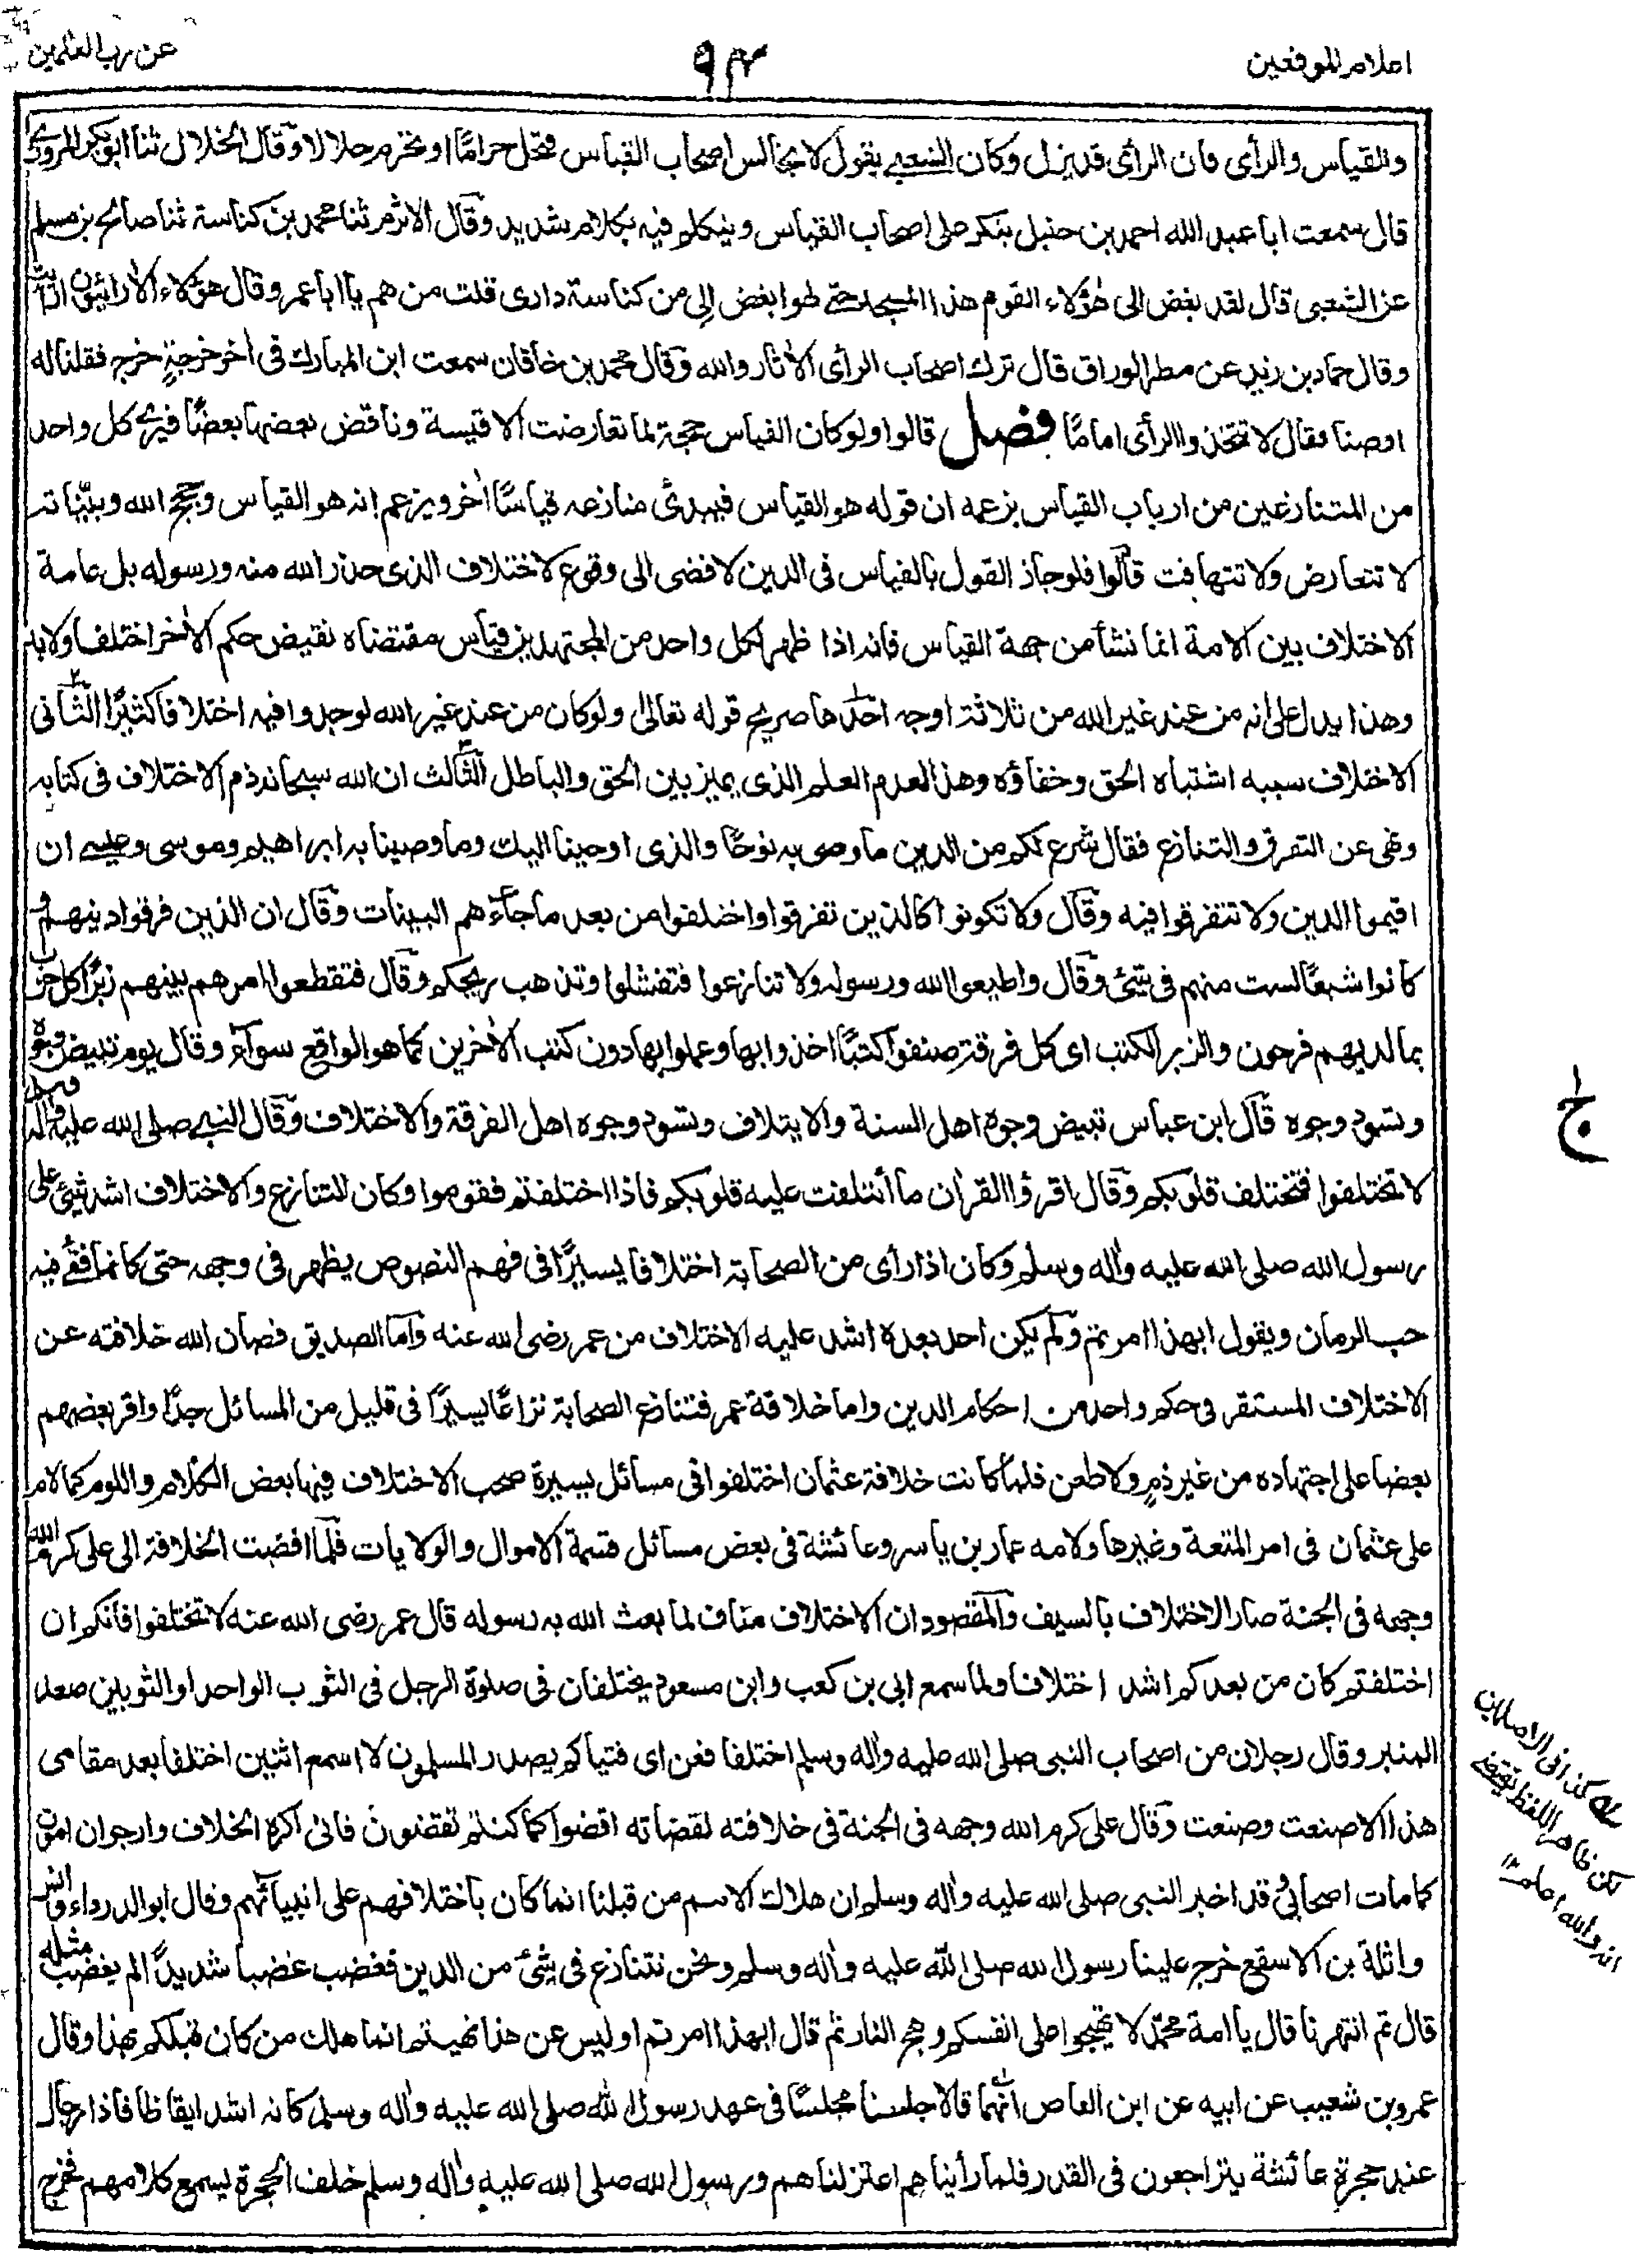 اعلام الموقعين
۹۴
عن رب العلمين
والقياس والرأى فان الرأى قد يزل وكان الشعبي يقول لا تجالس اصحاب القياس فتحل حراما او تحرم حلالا وقال الخلال ثنا ابو بكر المروزى
قال سمعت ابا عبد الله احمد بن حنبل ينكر على اصحاب القياس ويتكلم فيه بكلام شديد وقال الاثرم ثنا محمد بن كناسة ثنا صالح بن مسلم
عن الشعبى قال لقد بغض الى هؤلاء القوم هذا المسجد حتى لهوا بغض الى من كناسة دارى قلت من هم يا ابا عمر وقال هؤلاء الارائيون ارأيت
وقال حماد بن زيد عن مطر الوراق قال ترك اصحاب الرأى الآثار والله وقال محمد بن خاقان سمعت ابن المبارك فى اخر خرجةٍ خرج فقلنا له
اوصنا فقال لا تتخذوا الرأى اماما فصل قالوا ولو كان القياس حجة لما تعارضت الاقيسة وناقض بعضها بعضا فيرى كل واحد
من المتنازعين من ارباب القياس بزعمه ان قوله هو القياس فيبدئ منازعه قياسًا اٰخر ويزعم انه هو القياس وحجج الله وبيّناته
لا تتعارض ولا تتهافت قالوا فلو جاز القول بالقياس فى الدين لافضى الى وقوع لاختلاف الذى حذر الله منه ورسوله بل عامة
الاختلاف بين الامة انما نشأ من جهة القياس فانه اذا ظهر لكل واحد من المجتهدين قياس مقتضاه نقيض حكم الاٰخر اختلفا ولا بد
وهذا يدل على انه من عند غير الله من ثلاثة اوجه احدها صريح قوله تعالىٰ ولو كان من عند غير الله لوجدوا فيه اختلافا كثيرًا الثانى
الاختلاف سببه اشتباه الحق وخفاؤه وهذا لعدم العلم الذى يميز بين الحق والباطل الثالث ان الله سبحانه ذم الاختلاف فى كتابه
ونهى عن التفرق والتنازع فقال شرع لكم من الدين ما وصى به نوحًا والذى اوحينا اليك وما وصينا به ابراهيم وموسى وعيسى ان
اقيموا الدين ولا تتفرقوا فيه وقال ولا تكونوا كالذين تفرقوا واختلفوا من بعد ما جاءهم البينات وقال ان الذين فرقوا دينهم و
كانوا شيعًا لست منهم فى شئ وقال واطيعوا الله ورسوله ولا تنازعوا فتفشلوا وتذهب ريحكم وقال فتقطعوا امرهم بينهم زبرًا كل حزب
بما لديهم فرحون والزبر الكتب اى كل فرقة صنفوا كتبًا اخذوا بها وعملوا بها دون كتب الاٰخرين كما هو الواقع سواء وقال يوم تبيض وجوه
وتسود وجوه قال ابن عباس تبيض وجوه اهل السنة والايتلاف وتسود وجوه اهل الفرقة والاختلاف وقال النبي صلى الله عليه واله وسلم
لا تختلفوا فتختلف قلوبكم وقال اقرؤا القرأن ما أئتلفت عليه قلوبكم فاذا اختلفتم فقوموا وكان التنازع والاختلاف اشد شئ على
رسول الله صلى الله عليه واٰله وسلم وكان اذا رأى من الصحابة اختلافا يسيرًا فى فهم النصوص يظهر فى وجهه حتى كانما فقئ فيه
حب الرمان ويقول ابهذا امرتم ولم يكن احد بعده اشد عليه الاختلاف من عمر رضى الله عنه واما الصديق فصان الله خلافته عن
الاختلاف المستقر فى حكم واحد من احكام الدين واما خلافة عمر فتنازع الصحابة نزاعًا يسيرًا فى قليل من المسائل جدًا واقر بعضهم
بعضا على اجتهاده من غير ذمٍ ولا طعن فلما كانت خلافة عثمان اختلفوا فى مسائل يسيرة صحب الاختلاف فيها بعض الكلام واللوم كما لام
على عثمان فى امر المتعة وغيرها ولامه عمار بن ياسر وعائشة فى بعض مسائل قسمة الاموال والولايات فلما افضت الخلافة الى على كرم الله
وجهه فى الجنة صار الاختلاف بالسيف والمقصود ان الاختلاف مناف لما بعث الله به رسوله قال عمر رضى الله عنه لا تختلفوا فانكم ان
اختلفتم كان من بعدكم اشد اختلافا ولما سمع ابى بن كعب وابن مسعود يختلفان فى صلوة الرجل فى الثوب الواحد او الثوبين صعد
المنبر وقال رجلان من اصحاب النبى صلى الله عليه واله وسلم اختلفا فعن اى فتياكم يصدر المسلمون لا اسمع اثنين اختلفا بعد مقامى
هذا الا صنعت وصنعت وقال على كرم الله وجهه فى الجنة فى خلافته لقضاته اقضوا كما كنتم تقضون فانى اكره الخلاف وارجو ان اموت
كما مات اصحابى قد اخبر النبى صلى الله عليه واٰله وسلم ان هلاك الامم من قبلنا انما كان باختلافهم على انبيائهم وقال ابو الدرداء وانس
واثلة بن الاسقع خرج علينا رسول الله صلى الله عليه واٰله وسلم ونحن نتنازع فى شئ من الدين فغضب غضبا شديدًا لم يغضب مثله
قال ثم انتهرنا قال يا امة محمّد لا تهيجوا على انفسكم وهج النار ثم قال ابهذا امرتم او ليس عن هذا نهيتم انما هلك من كان قبلكم بهذا وقال
عمرو بن شعيب عن ابيه عن ابن العاص انهما قالا جلسنا مجلسًا فى عهد رسول الله صلى الله عليه واٰله وسلم كانه اشد ايقاظا فاذا رجال
عند حجرة عائشة يتراجعون فى القدر فلما رأيناهم اعتزلناهم ورسول الله صلى الله عليه واٰله وسلم خلف الحجرة يسمع كلامهم فخرج
ج ١
كذا فى الاصلين
لكن ظاهر اللفظ يقتضى
انه والله اعلم ١٢